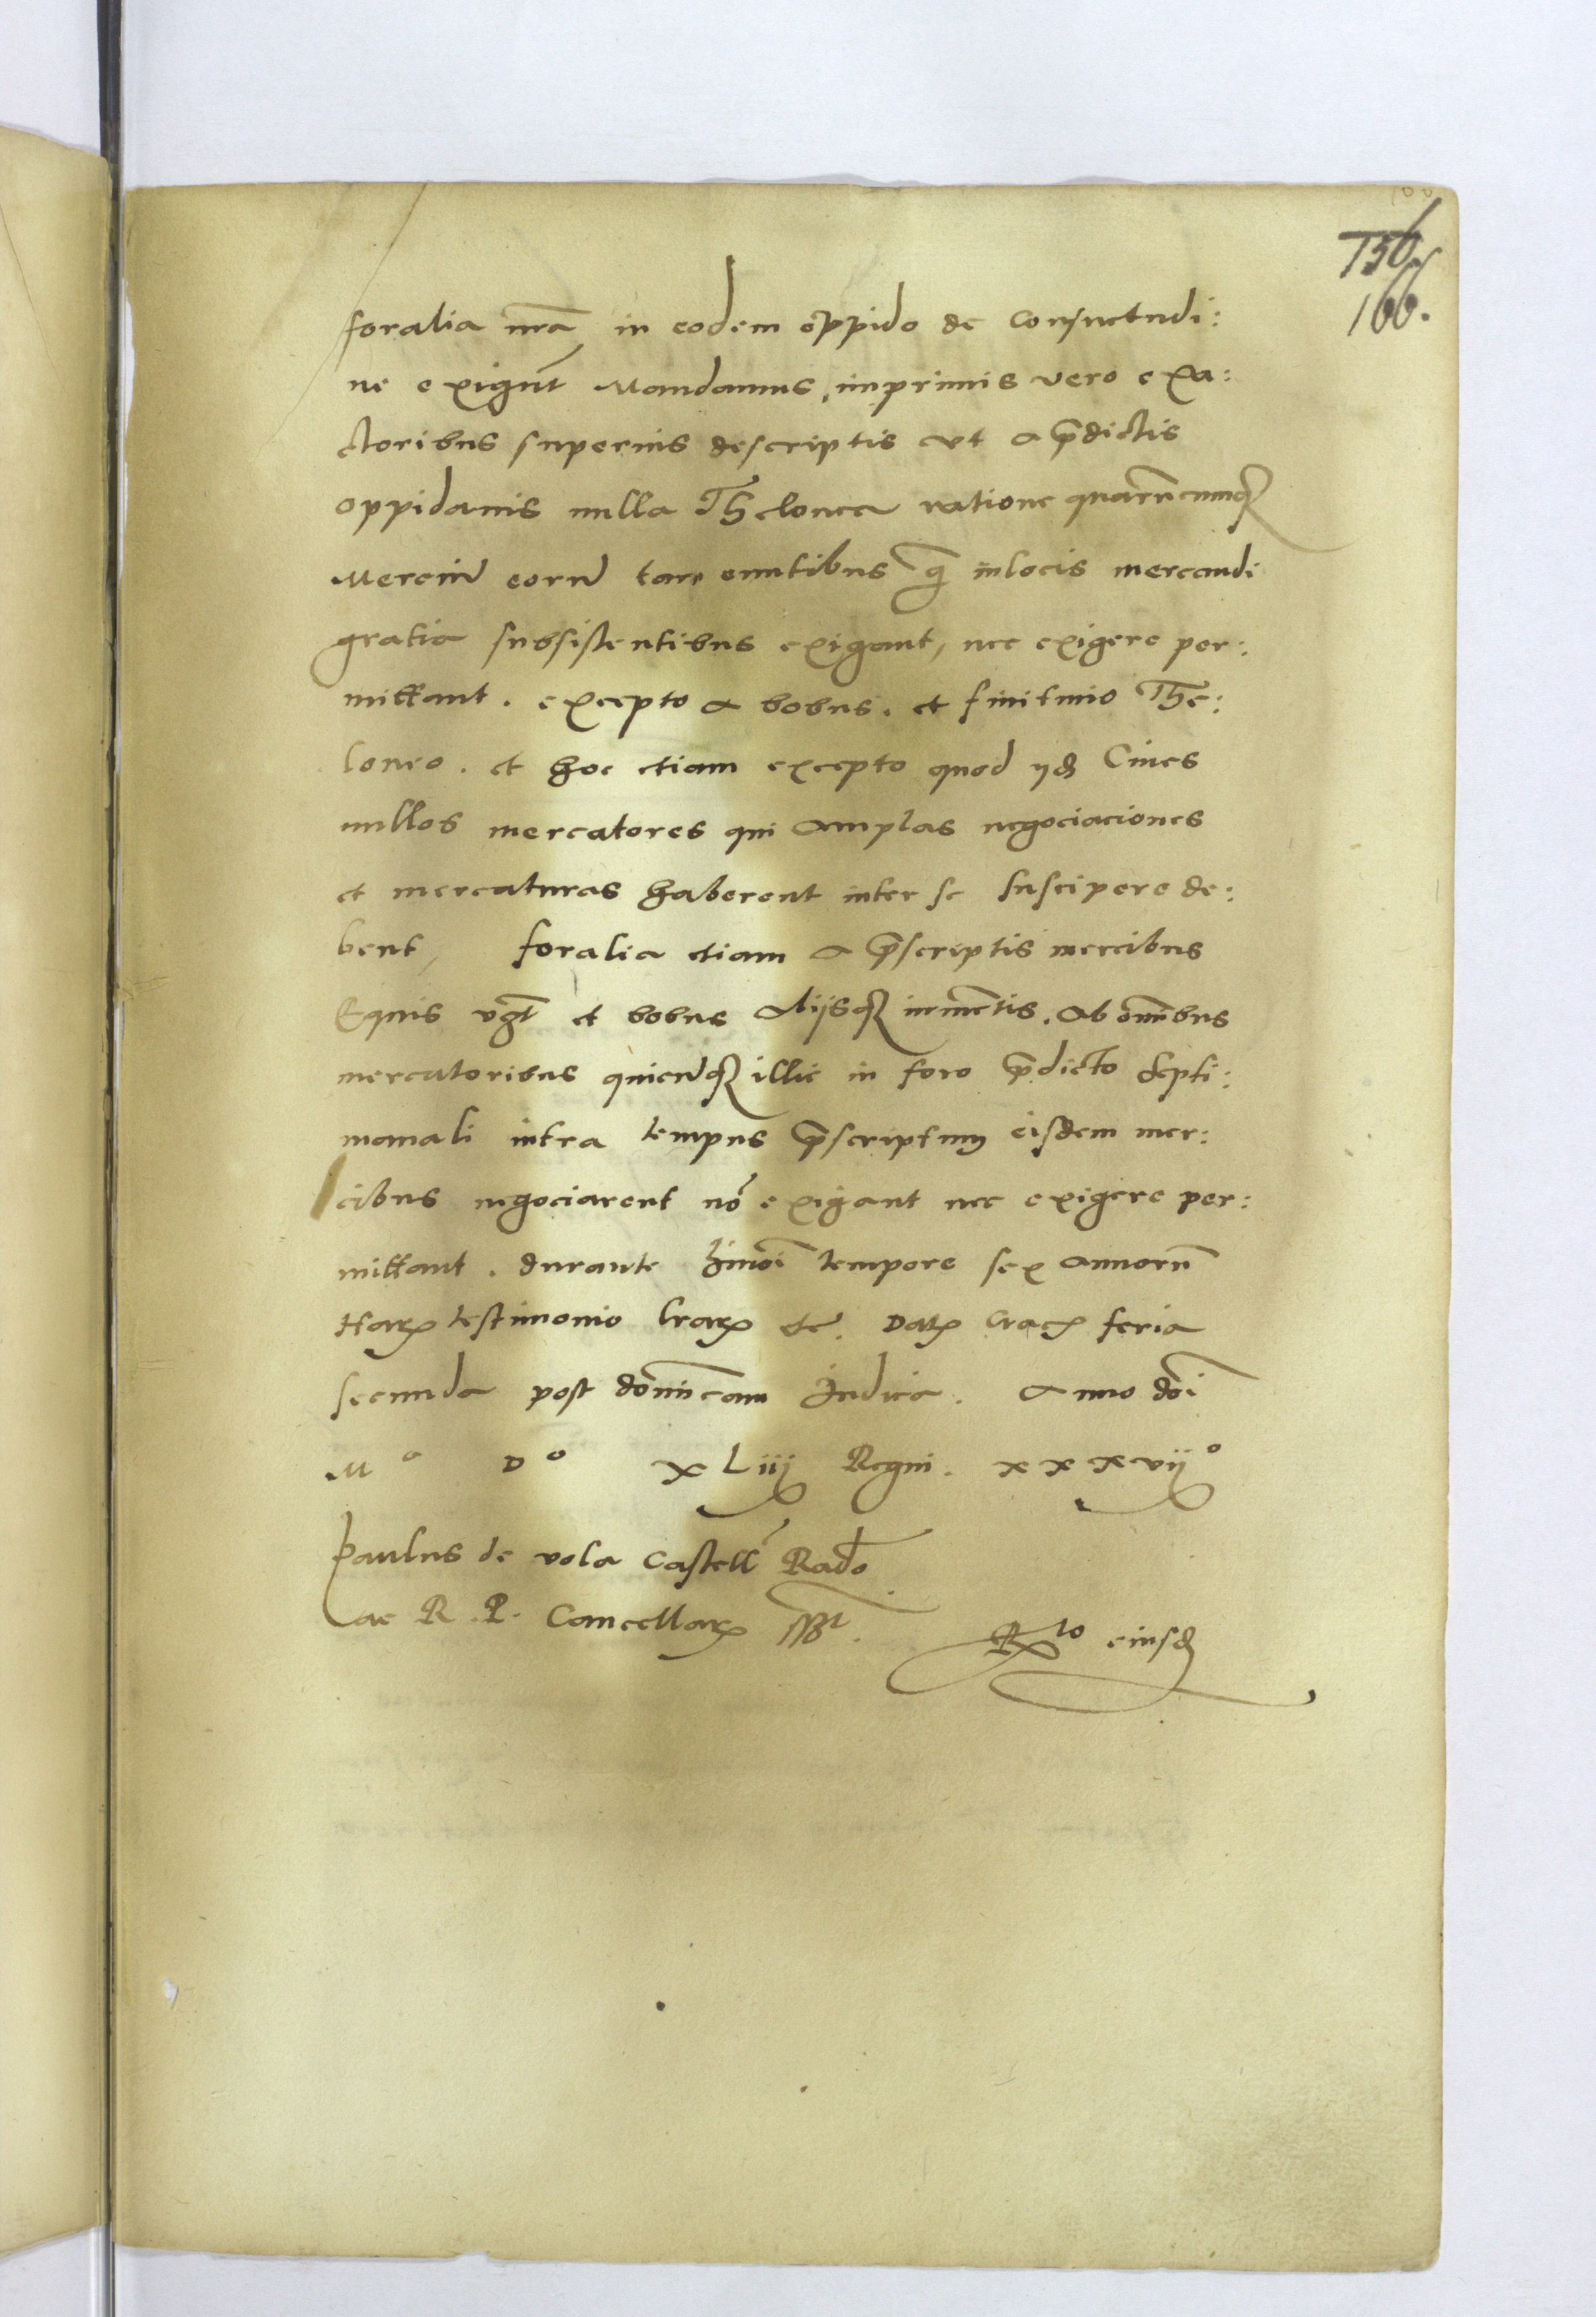 100
156
166.
foralia nr̃a in eodem oppido de consuetudi:
ne exigũt Mandamus, imprimis vero exa:
ctoribus superius descriptis vt a p̃dictis
oppidanis nulla Thelonea ratione quarũcumq̃
Merciũ eorũ tam euntibus q̃ in locis mercandi
gratia subsistentibus exigant, nec exigere per:
mittant. excepto a bobus. et finitimo The:
loneo. et hoc etiam excepto quod ijd̃ Ciues
nullos mercatores qui amplas negociaciones
et mercaturas haberent inter se suscipere de:
bent, foralia etiam a p̃scriptis mercibus
Equis vg̃t et bobus alijsq̃ iumẽtis. ab om̃ibus
mercatoribus quicũq̃ illic in foro p̃dicto septi:
manali intra tempus p̃scriptum eisdem mer:
cibus negociarent nõ exigant nec exigere per:
mittant. durante hmõi tempore sex annorũ
Harꝝ testimonio lrarꝝ etc̃. Datꝝ Cracꝝ feria
secunda post dominicam Iudica. Anno dñi
Mº Dº xLiij Regni. xxxvijº
Paulus de vola Castell̃ Rado
ac R. P. Cancellarꝝ sst.
Rꝝto eiusd̃